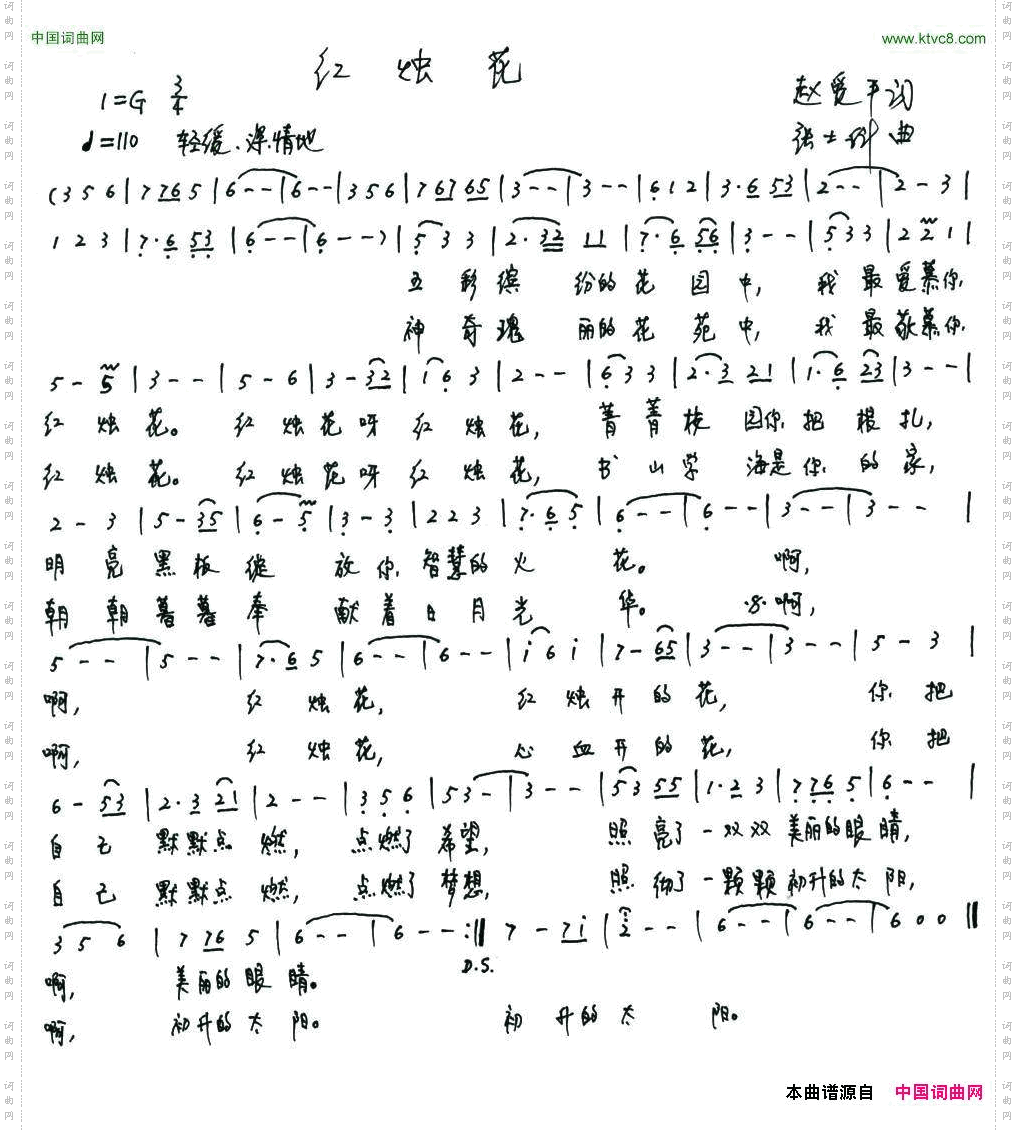 中国词曲网 www.ktvc8.com
红 烛 花
1=G 3/4
赵爱平 词
♩=110 轻缓、深情地
张士 曲
(3 5 6 | 7 76 5 | 6 - - | 6 - - | 3 5 6 | 7 67 65 | 3 - - | 3 - - | 6 1 2 | 3·6 53 | 2 - - | 2 - 3 |
1 2 3 | 7·6 53 | 6 - - | 6 - -) | 5 3 3 | 2·32 11 | 7·6 56 | 3 - - | 5 3 3 | 2 2 1 |
五 彩 缤 纷的 花 园 中, 我 最 爱慕你,
神 奇 瑰 丽的 花 苑 中, 我 最 敬慕你.
5 - 5 | 3 - - | 5 - 6 | 3 - 32 | 1 6 3 | 2 - - | 6 3 3 | 2·3 21 | 1·6 23 | 3 - - |
红 烛 花。 红 烛 花 呀 红 烛 花, 菁 菁 校 园你 把 根 扎,
红 烛 花。 红 烛 花 呀 红 烛 花, 书 山 学 海是 你 的 家,
2 - 3 | 5 - 35 | 6 - 5 | 3 - 3 | 2 2 3 | 7·6 5 | 6 - - | 6 - - | 3 - - | 3 - - |
明 亮 黑 板 绽 放 你 智慧的 火 花。 啊,
朝 朝 暮 暮 奉 献 着 日 月 光 华。 啊,
5 - - | 5 - - | 7·6 5 | 6 - - | 6 - - | i 6 i | 7 - 65 | 3 - - | 3 - - | 5 - 3 |
啊, 红 烛 花, 红 烛 开 的 花, 你 把
啊, 红 烛 花, 心 血 开 的 花, 你 把
6 - 53 | 2·3 21 | 2 - - | 3 5 6 | 5 3 - | 3 - - | 5 3 55 | 1·2 3 | 7 76 5 | 6 - - |
自 己 默 默点 燃, 点燃了 希望, 照 亮了 一双双 美丽的眼 睛,
自 己 默 默点 燃, 点燃了 梦想, 照 彻了 一颗颗 初升的太 阳,
3 5 6 | 7 76 5 | 6 - - | 6 - - :‖ 7 - 7i | 2 - - | 6 - - | 6 - - | 6 0 0 ‖
D.S.
啊, 美丽的 眼 睛。
啊, 初升的 太 阳。 初 升的 太 阳。
本曲谱源自 中国词曲网